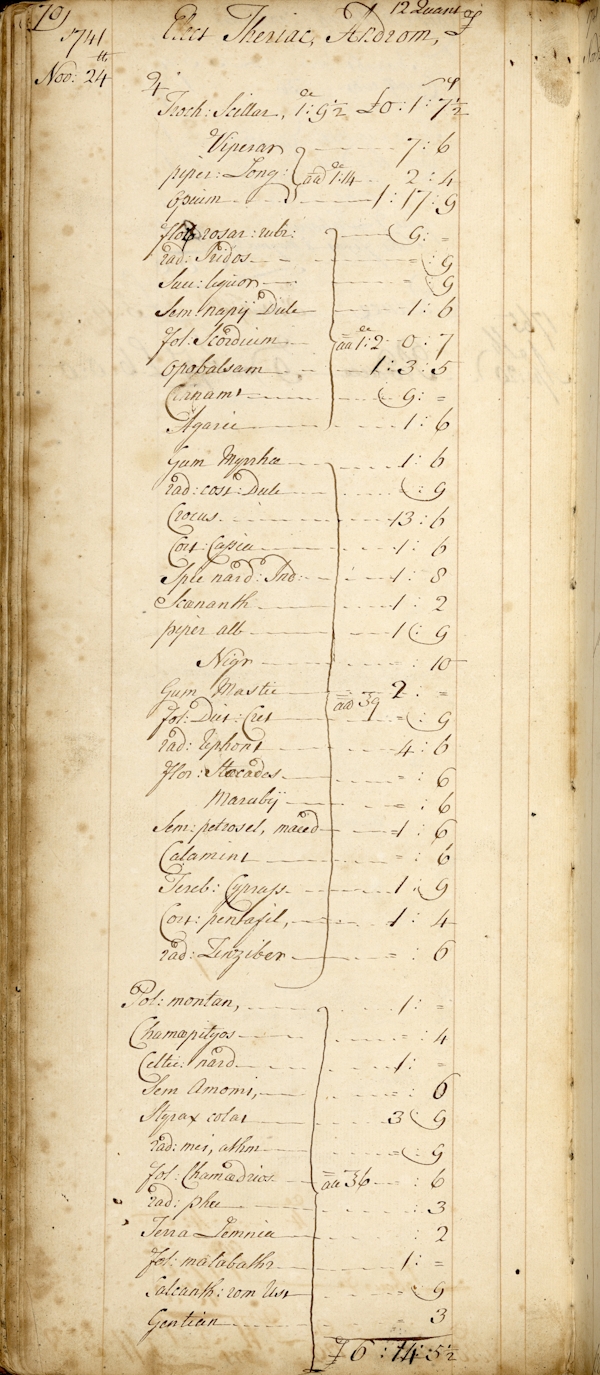 (70)
1741
Nov: 24
Elect Theriac, Androm, 12 Quant
Troch: Scillar, 1:9½ £0:1:7½
Viperar 7:6
piper: Long: aa 1:14 2:4
Opium 1:17:9
flor rosar: rubr: 9:-
rad: Iridos 9
Suc: liquor 9
Sem: napij Dulc 1:6
fol: Scordium aa 1:2 0:7
Opobalsam 1:3:5
Cinnamt 9:-
Agaric 1:6
Gum Myrrhæ 1:6
rad: cost: Dulc 9
Crocus 13:6
Cort: Cassia 1:6
Spic nard: Ind: 1:8
Scænanth 1:2
piper alb 1:9
Nigr :10
Gum Mastic 2:-
fol: Dict: Cret aa ℥9 -:9
rad: Rhpont 4:6
flor: Stæcados -:6
Marubij -:6
Sem: petrosel, maced 1:6
Calamint -:6
Tereb: Cypress 1:9
Cort: pentafil, 1:4
rad: Zinziber -:6
Pol: montan, 1:-
Chamæpityos :4
Celtic: nard 1:-
Sem Amomi, -:6
Styrax colat 3:9
rad: mei, athm -:9
fol: Chamædrios aa ℥6 :6
rad: phu :3
Terra Lemnia :2
fol: malabathr 1:-
Calcanth: rom Ust 9
Gentian 3
£6:14:5½